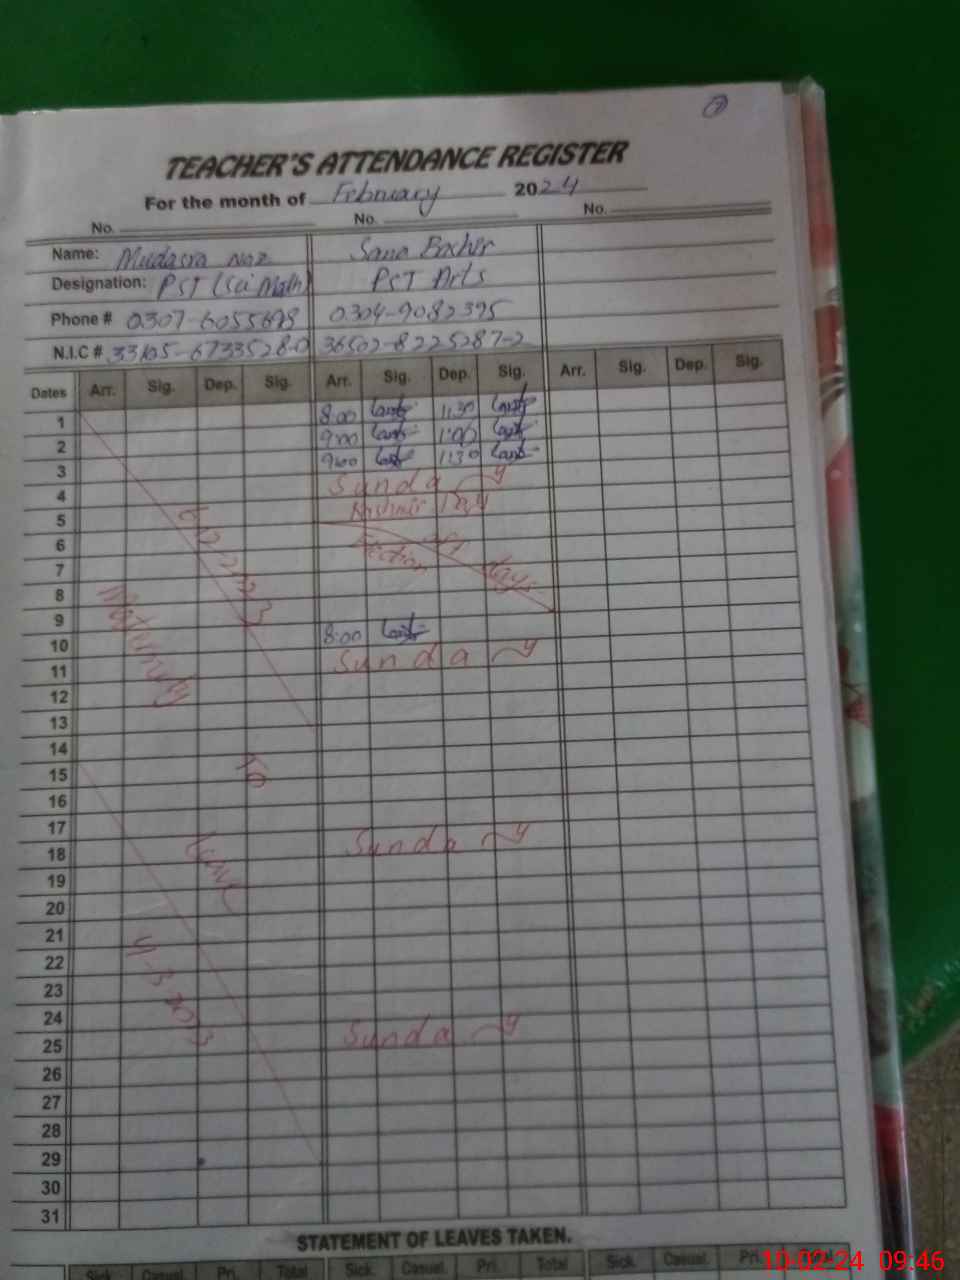 7
TEACHER'S ATTENDANCE REGISTER
For the month of February 2024
No. No. No.
Name: Mudasra Naz Sana Bashir
Designation: PST (Sci Math) PST Arts
Phone # 0307-6055698 0304-9082395
N.I.C # 33105-6733528-0 36502-8225287-2
Dates Arr. Sig. Dep. Sig. Arr. Sig. Dep. Sig. Arr. Sig. Dep. Sig.
1 8:00 11:30
2 9:00 1:00
3 9:00 11:30
4 Sunday
5 Kashmir Day
6 Election off days
7
8
9
10 8:00
11 Sunday
12
13
14
15
16
17
18 Sunday
19
20
21
22
23
24
25 Sunday
26
27
28
29
30
31
Maternity
To
Leave
STATEMENT OF LEAVES TAKEN.
Sick Casual Pri. Total Sick. Casual. Pri. Total Sick. Casual. Pri.
10-02-24 09:46